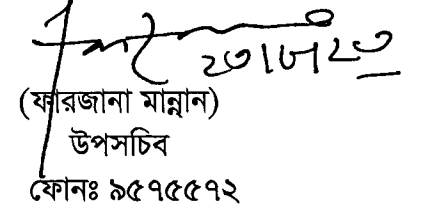 ২৩।৮।২৩
(ফারজানা মান্নান)
উপসচিব
ফোনঃ ৯৫৭৫৫৭২